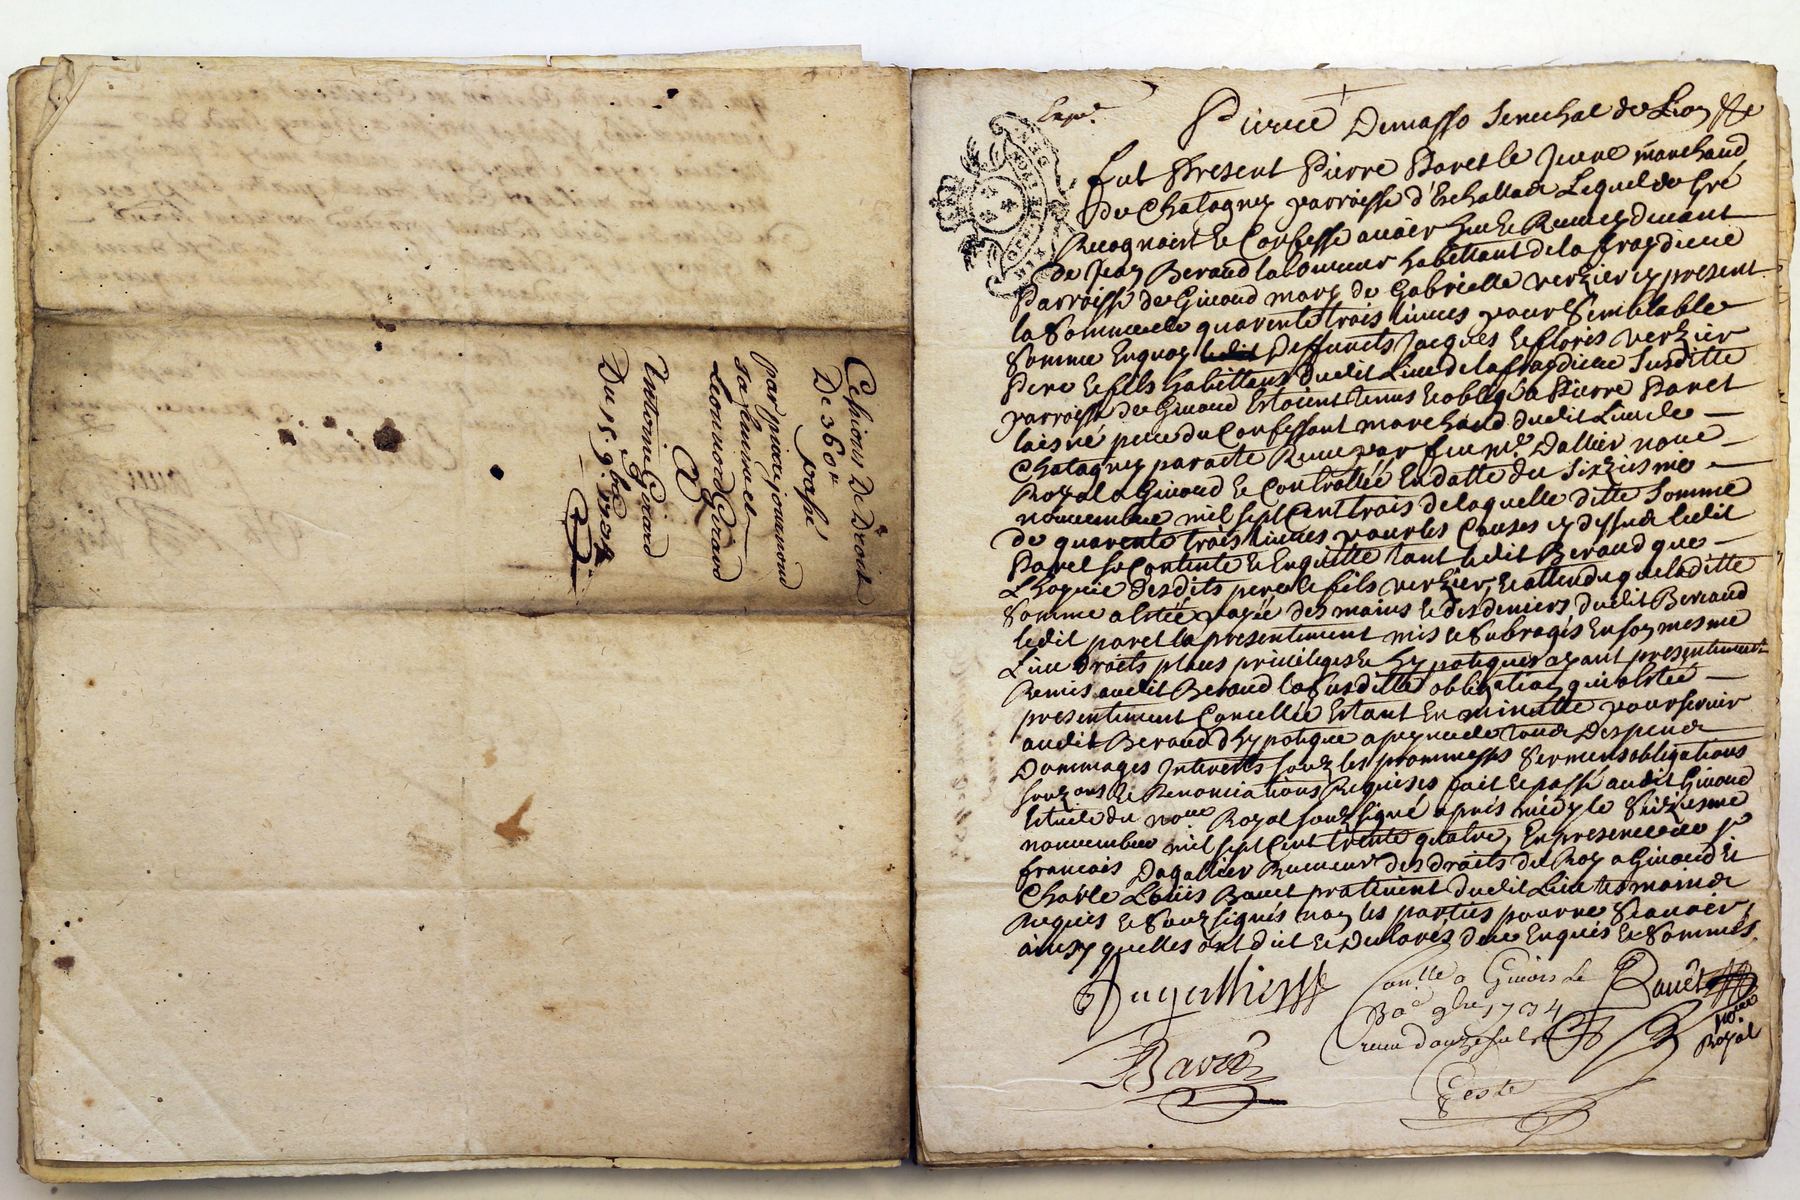 Cessions De Droits
De 360# passé
par pierre jouuanond
sa femme et
Leonnord Girard
A
Anttoine Gerard
Du 15 9bre 1704
Expé.
Pierre Demasso Senechal de Lion &c
fut Present Pierre Paret le Jeune marchand
du Chatagney parroisse d'Eschallas Lequel de Gré
Recognoist et Confesse auoir heu et Receu cy deuant
de Jean Beraud laboureur habittant de la fraydiere
Parroisse de Giuord mary de Gabrielle verzier cy present
la Somme de quarente trois liures pour Semblable
Somme Enquoy Deffuncts Jacques et floris verzier
Pere et fils habittans dudit Lieu de la fraydiere Susditte
parroisse de Giuord Estoient tenus et obligé a Pierre Paret
laisné pere du Confessant marchand dudit Lieu de
Chatagney par acte Receu par feu Me. Dallier nore
Royal a Giuord et Controllée En datte du Sixiesme
nouuembre mil sept Cent trois de laquelle ditte Somme
de quarente trois liures pour les Causes cy dessus ledit
Paret se Contente et En quitte tant ledit Beraud que
L'hoyrie desdits pere et fils verzier, et attendu que laditte
Somme a Estée payée des mains et des deniers dudit Beraud
ledit paret la presentement mis et Subrogés En son mesme
Lieu droits places priuileges et hypotiques ayant presentement
Remis audit Beraud la Susditte obligation qui a Estée
presentement Cancellée Estant En minutte pour seruir
audit Beraud d'hypotique a peyne de tous Despens
Dommages Interests souz les prommesses Serments obligations
souz ons et Renonciations Requises fait et passé audit Giuord
Estude du nore Royal souz signé apres midy le Sixiesme
nouuembre mil sept Cent trente quatre, En presence de sr
francois Dagallier Receueur des droits du Roy a Giuord Et
Charle Loüis Bauet pratitient dudit Lieu tesmoins
Requis et Souz signés non les parties pour ne Scauoir,
ainsy quelles ont dit et Declarés de ce Enquis et Sommés
Dagallier
Conllé a Giuors le
30e 9bre 1734
receu douze sols
Bauet
nore
Royal
Coste